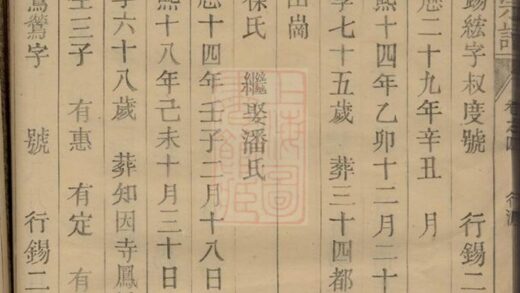 錫絃字叔度號 行錫二
二十九年辛丑 月
熙十四年乙卯十二月二十
七十五歲 葬三十四都
山崗
氏 繼娶潘氏
十四年壬子二月十八日
熙十八年己未十月三十日
六十八歲 葬知因寺鳳
生三子 有惠 有定 有
字 號 行錫二
上海圖書館藏